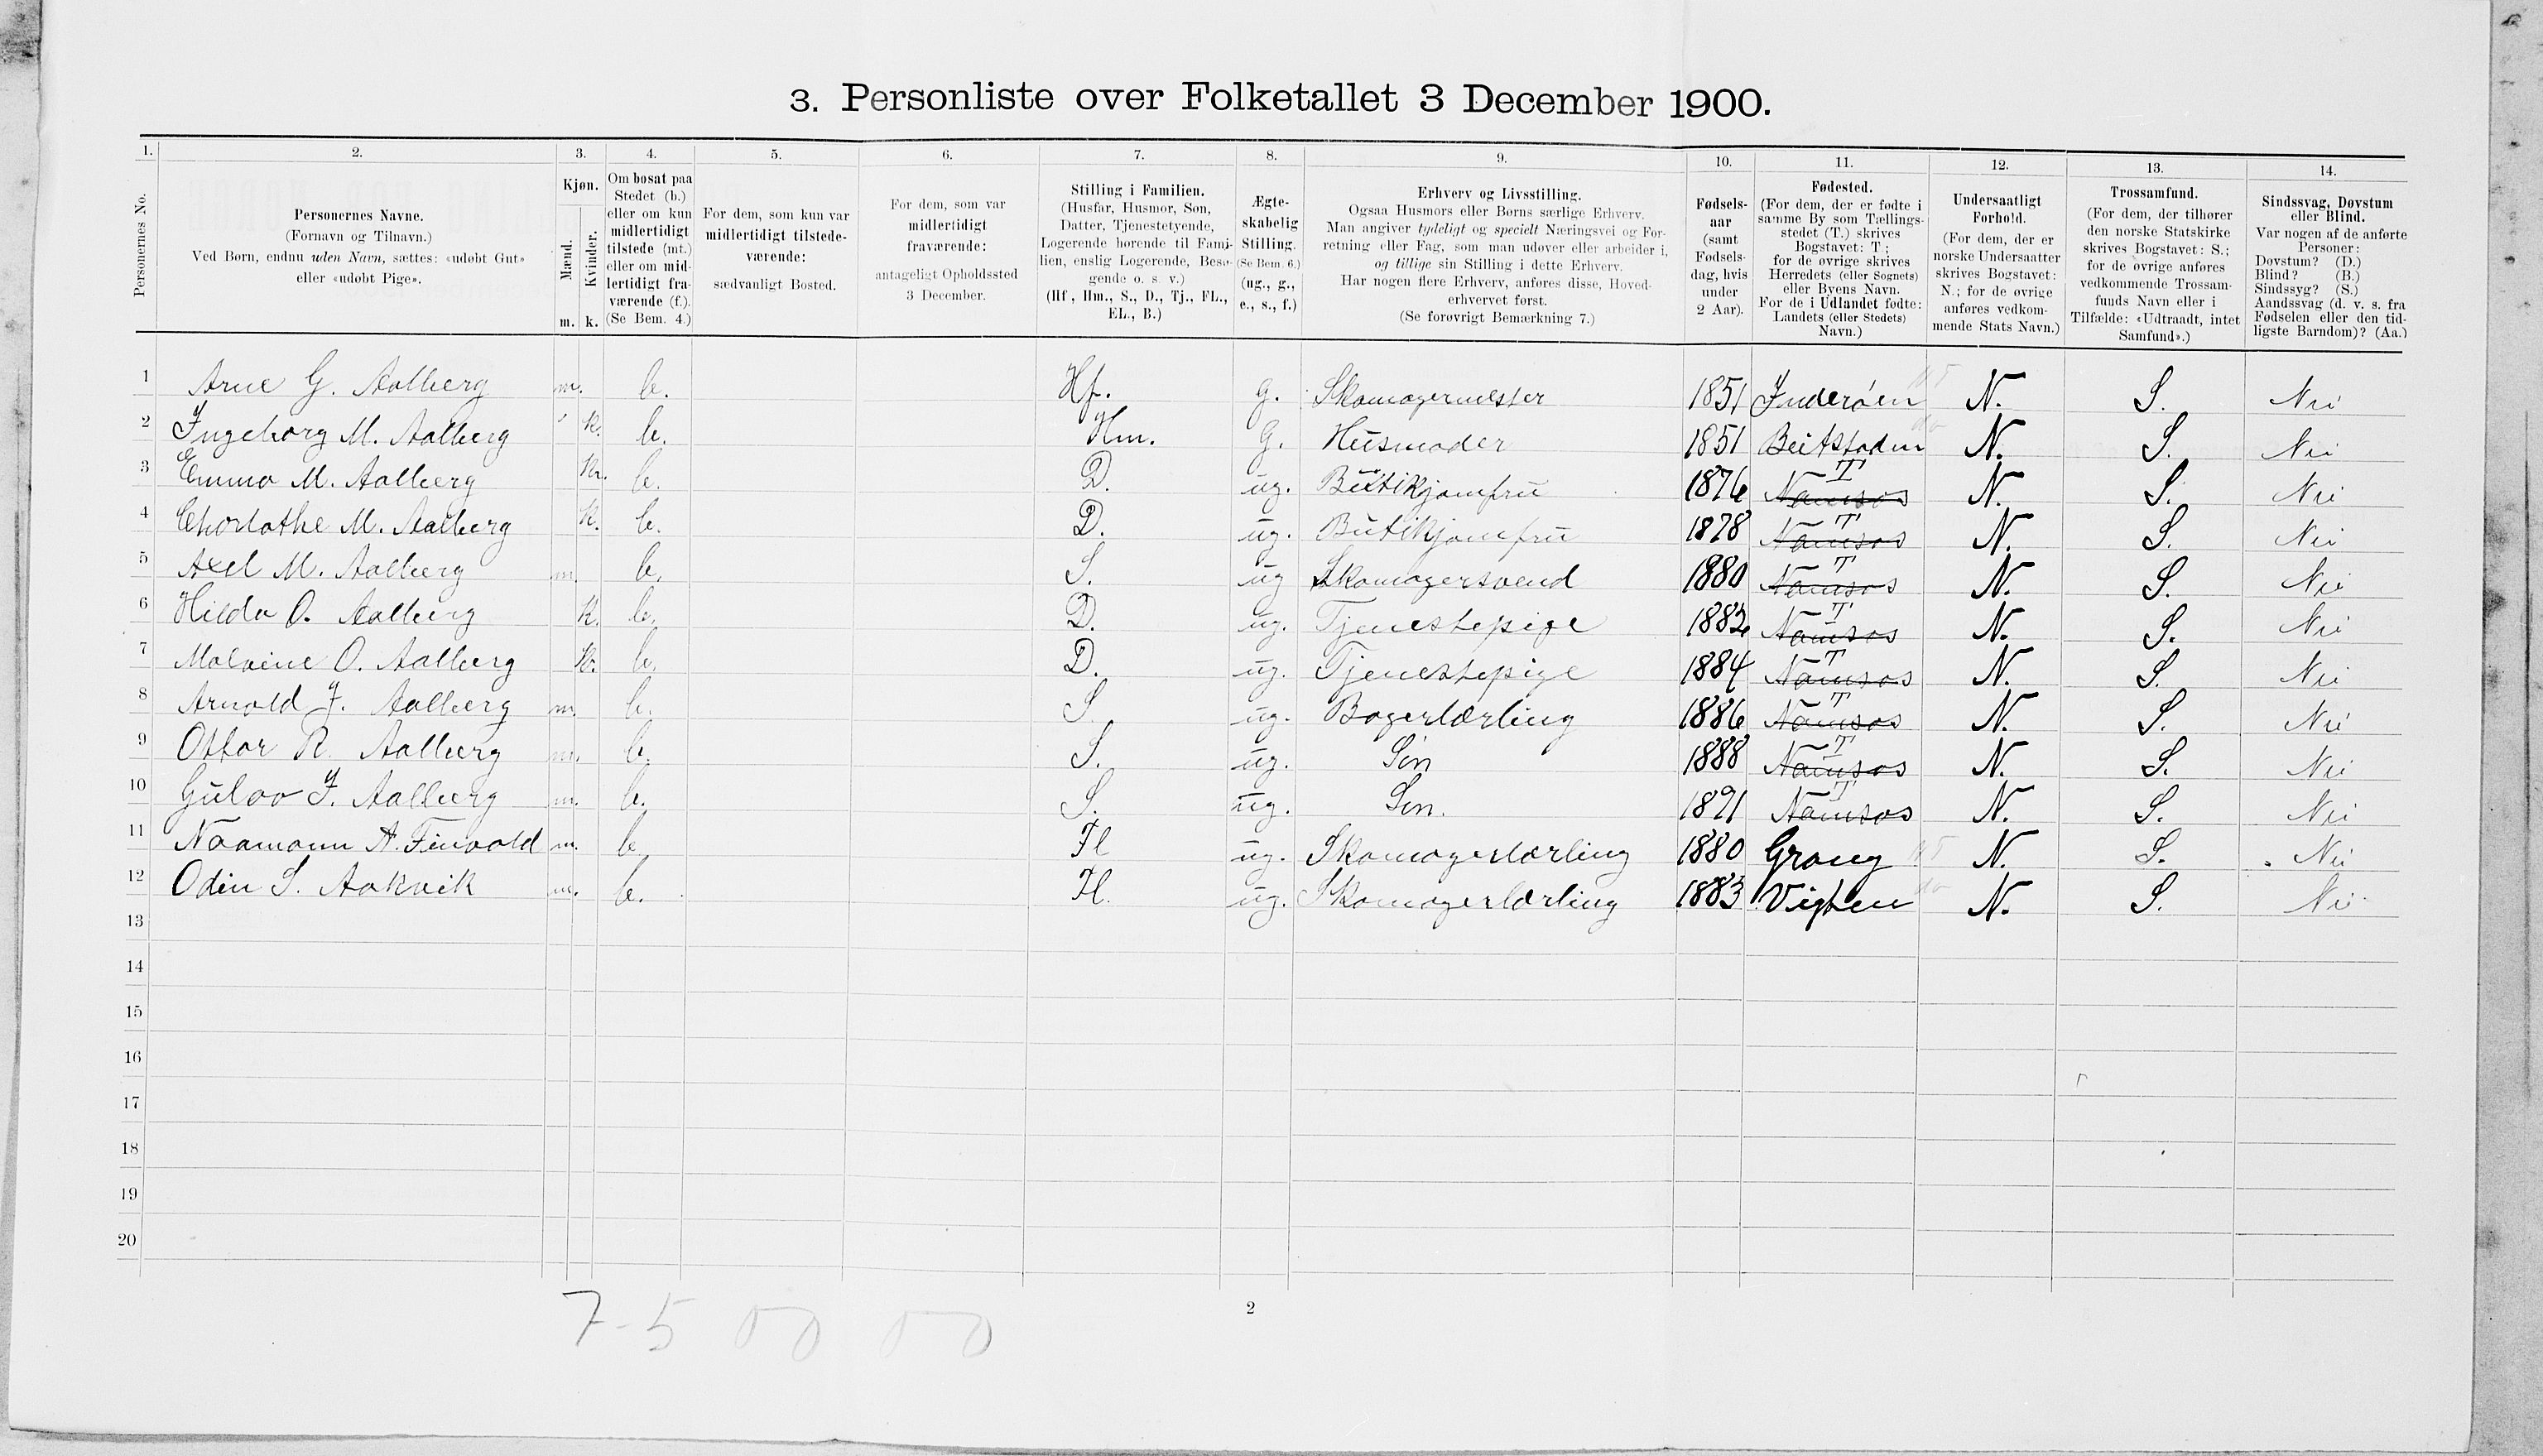 3. Personliste over Folketallet 3 December 1900.
1. 2. 3. 4. 5. 6. 7. 8. 9. 10. 11. 12. 13. 14.
Personernes No.
Personernes Navne.
(Fornavn og Tilnavn.)
Ved Børn, endnu uden Navn, sættes: «udøbt Gut»
eller «udøbt Pige».
Kjøn.
Mænd.
Kvinder.
m. k.
Om bosat paa
Stedet (b.)
eller om kun
midlertidigt
tilstede (mt.)
eller om mid-
lertidigt fra-
værende (f.).
(Se Bem. 4.)
For dem, som kun var
midlertidigt tilstede-
værende:
sædvanligt Bosted.
For dem, som var
midlertidigt
fraværende:
antageligt Opholdssted
3 December.
Stilling i Familien.
(Husfar, Husmor, Søn,
Datter, Tjenestetyende,
Logerende hørende til Fami-
lien, enslig Logerende, Besø-
gende o. s. v.)
(Hf., Hm., S., D., Tj., FL.,
EL., B.)
Ægte-
skabelig
Stilling.
(Se Bem. 6.)
(ug., g.,
e., s., f.)
Erhverv og Livsstilling.
Ogsaa Husmors eller Børns særlige Erhverv.
Man angiver tydeligt og specielt Næringsvei og For-
retning eller Fag, som man udøver eller arbeider i,
og tillige sin Stilling i dette Erhverv.
Har nogen flere Erhverv, anføres disse, Hoved-
erhvervet først.
(Se forøvrigt Bemærkning 7.)
Fødsels-
aar
(samt
Fødsels-
dag, hvis
under
2 Aar).
Fødested.
(For dem, der er fødte i
samme By som Tællings-
stedet (T.) skrives
Bogstavet: T.;
for de øvrige skrives
Herredets (eller Sognets)
eller Byens Navn.
For de i Udlandet fødte:
Landets (eller Stedets)
Navn.)
Undersaatligt
Forhold.
(For dem, der er
norske Undersaatter
skrives Bogstavet:
N.; for de øvrige
anføres vedkom-
mende Stats Navn.)
Trossamfund.
(For dem, der tilhører
den norske Statskirke
skrives Bogstavet: S.;
for de øvrige anføres
vedkommende Trossam-
funds Navn eller i
Tilfælde: «Udtraadt, intet
Samfund».)
Sindssvag, Døvstum
eller Blind.
Var nogen af de anførte
Personer:
Døvstum? (D.)
Blind? (B.)
Sindssyg? (S.)
Aandssvag (d. v. s. fra
Fødselen eller den tid-
ligste Barndom)? (Aa.)
1 Arne G. Aalberg m. b. Hf. g. Skomagermester 1851 Inderøen N. S. Nei
2 Ingeborg M. Aalberg k. b. Hm. G. Husmoder 1851 Beitstaden N. S. Nei
3 Emma M. Aalberg k. b. D. ug. Butikjomfru 1876 Namsos T N. S. Nei
4 Charlothe M. Aalberg k. b. D. ug. Butikjomfru 1878 Namsos T N. S. Nei
5 Axel M. Aalberg m. b. S. ug Skomagersvend 1880 Namsos T N. S. Nei
6 Hilda O. Aalberg k. b. D. ug. Tjenestepige 1882 Namsos T N. S. Nei
7 Malvine O. Aalberg k. b. D. ug. Tjenestepige 1884 Namsos T N. S. Nei
8 Arnold J. Aalberg m. b. S. ug. Bagerlærling 1886 Namsos T N. S. Nei
9 Ottar R. Aalberg m. b. S. ug. Søn 1888 Namsos T N. S. Nei
10 Gulov J. Aalberg m. b. S. ug. Søn. 1891 Namsos T N. S. Nei
11 Naamann A. Finvold m. b. Fl ug. Skomagerlærling 1880 Grong N. S. Nei
12 Odin S. Aakvik m. b. Fl. ug. Skomagerlærling 1883 Vigten N. S. Nei
13
14
15
16
17
18
19
20
7-5 00 00
2